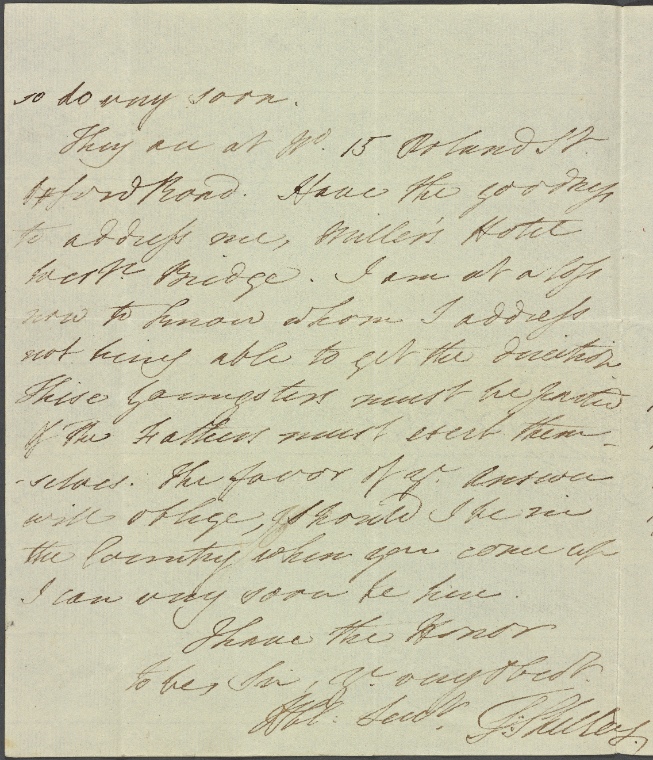 so do very soon.
They are at No. 15 Poland St.
Oxford Road. Have the goodness
to address me, Miller's Hotel
Westr. Bridge. I am at a loss
now to know whom I address
not being able to get the direction
These Youngsters must be parted
& the Fathers must exert them-
-selves. The favor of yr. answer
will oblige, & should I be in
the Country when you come up
I can very soon be here.
I have the Honor
to be, Sir, yr. very Obedt.
Hble. Servt. T: Shelley.